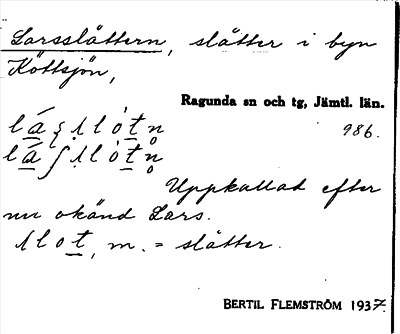 Larsslåttern, slåtter i byn
Köttsjön,
Ragunda sn och tg, Jämtl. län.
986.
Uppkallad efter
nu okänd Lars.
slot, m. = slåtter.
BERTIL FLEMSTRÖM 1937.